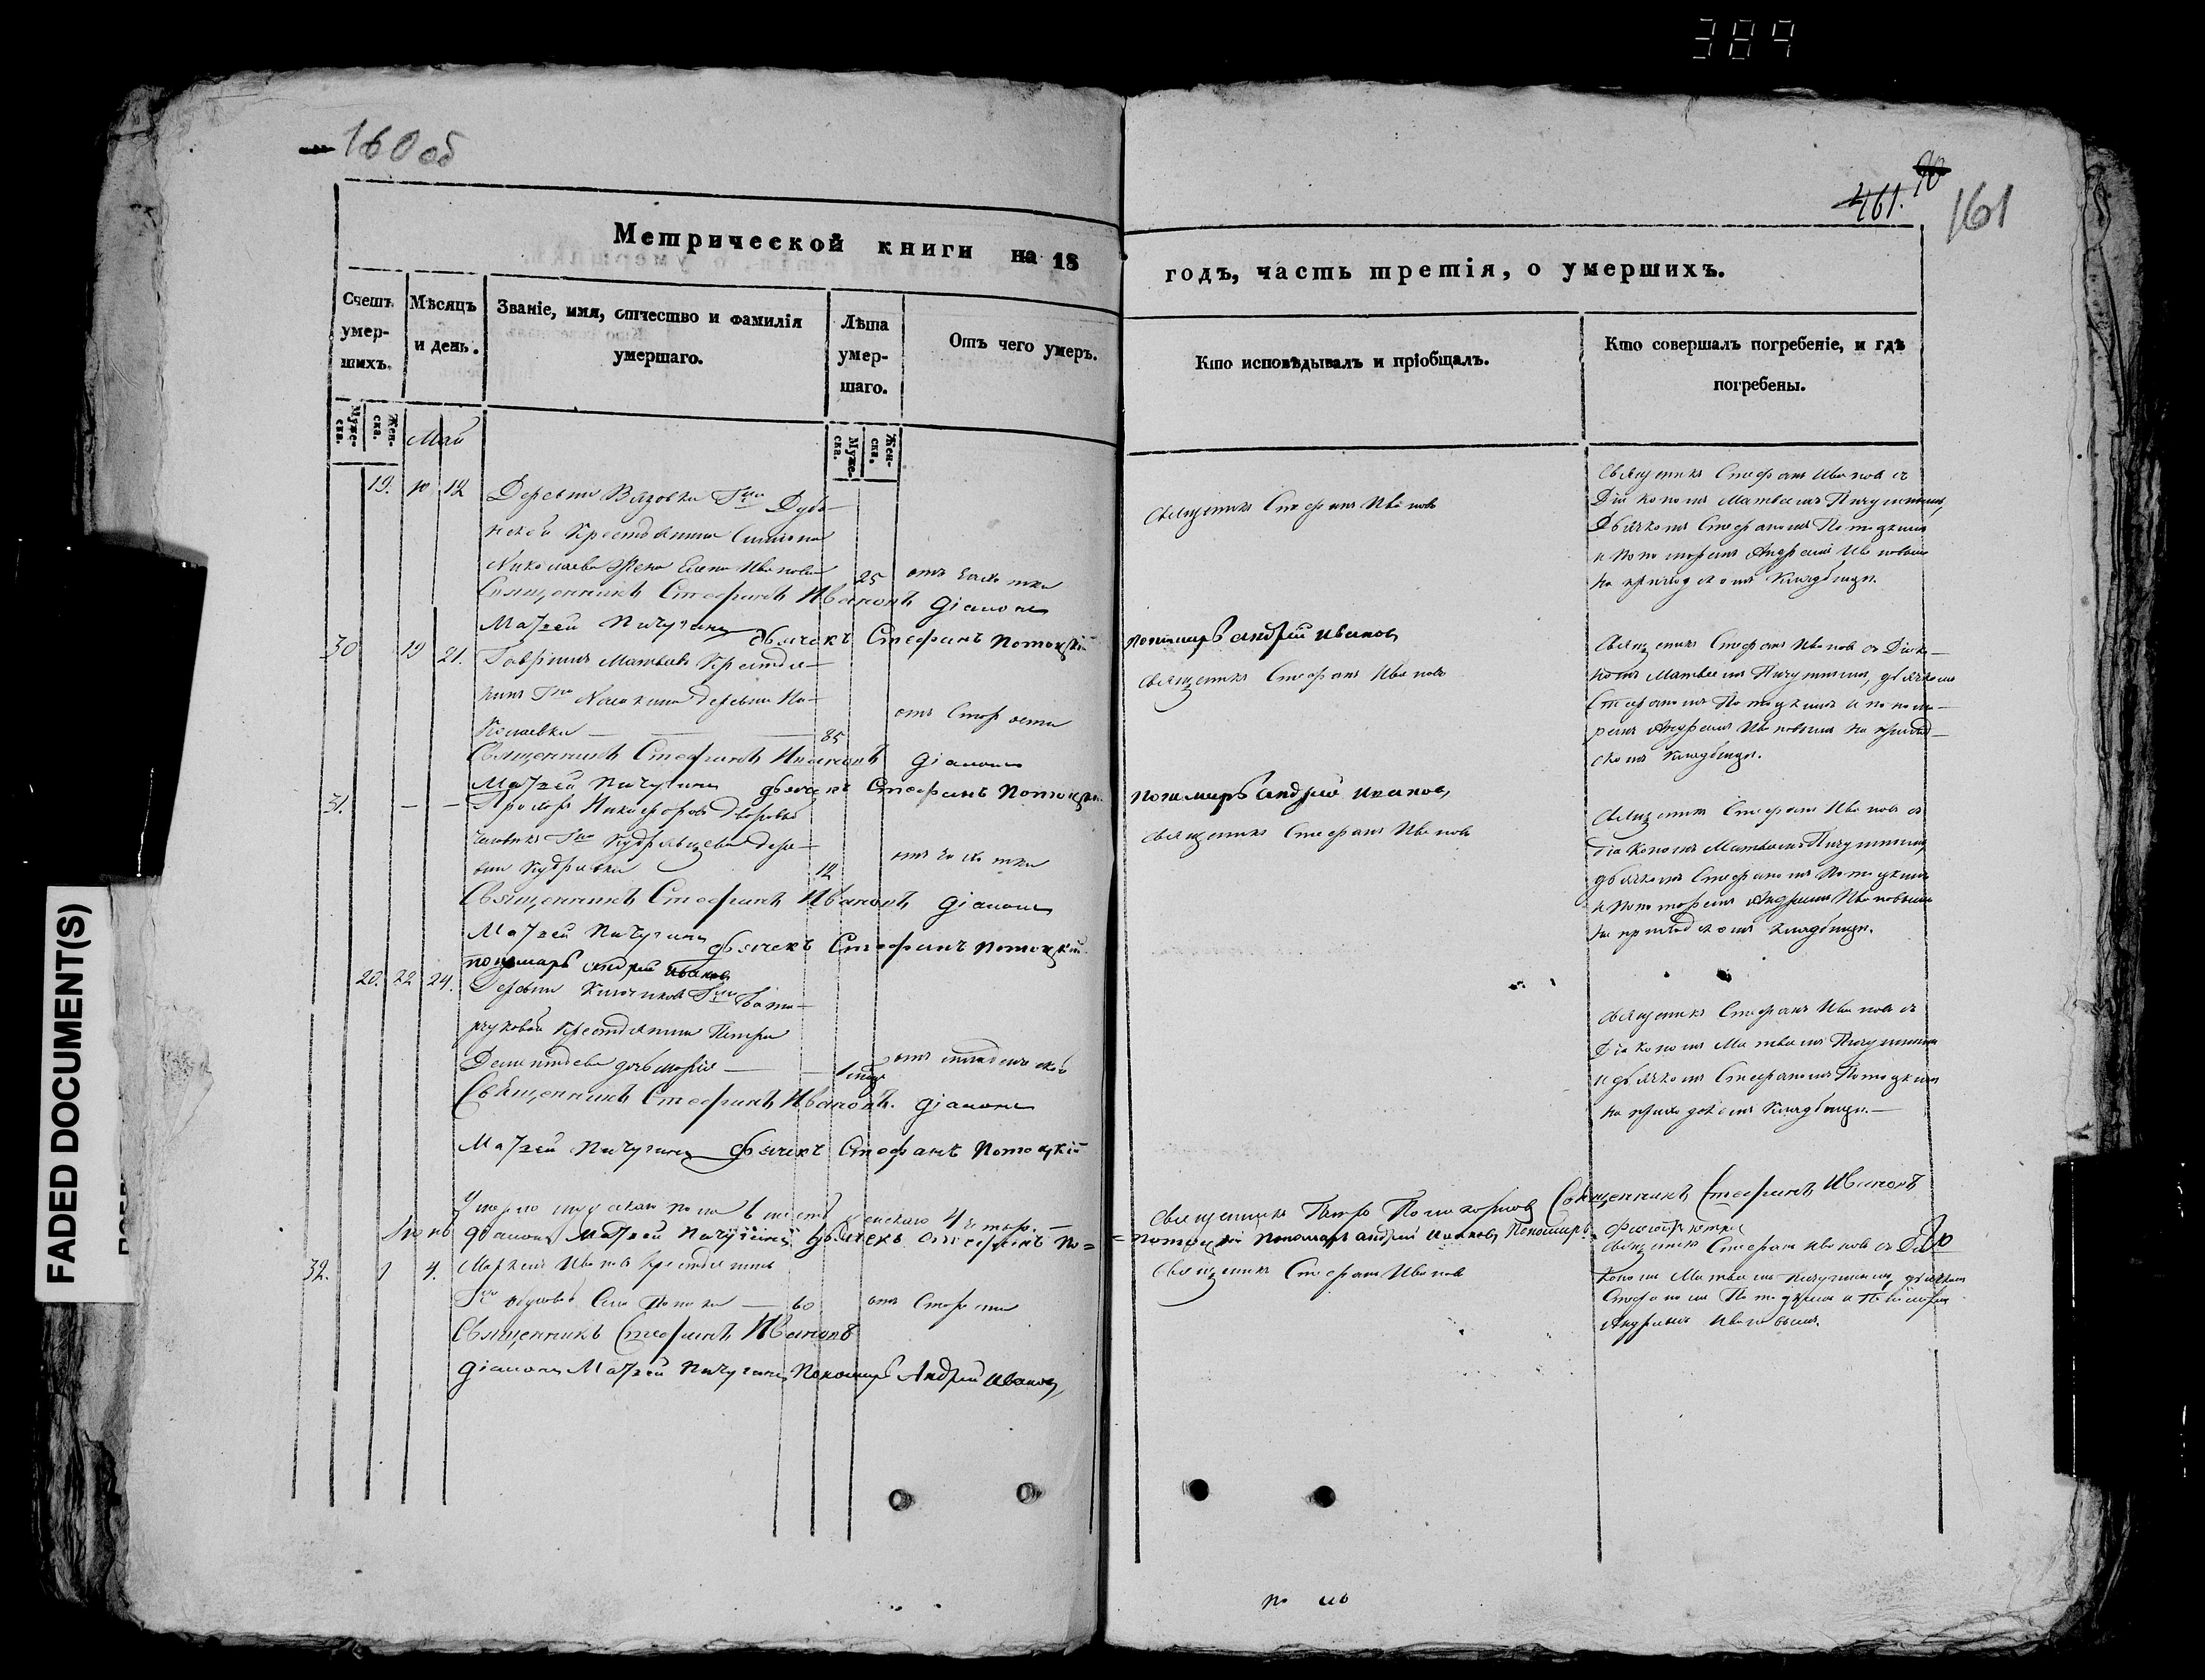 389
160 об
90
461.
161
Метрической книги на 18
годъ, часть третія, о умершихъ.
Счетъ умер-шихъ.
Мѣсяцъ и день.
Званіе, имя, отчество и фамилія
умершаго.
Лѣта умер-шаго.
Отъ чего умеръ.
Кто исповѣдывалъ и пріобщалъ.
Кто совершалъ погребеніе, и гдѣ
погребены.
Муже-ска.
Жен-ска.
Май
Муже-ска.
Жен-ска.
19. 10 12
Деревни Вязовки Гжи Дуб-
ской Крестьянина Симiона
Николаева жена Елена Иванова 25 отъ чахотки
Священникъ Стефанъ Ивановъ
Священникъ Стефанъ Ивановъ съ
Діакономъ Матвеемъ Пичугинымъ,
Дьячкомъ Стефаномъ Потоцкимъ
и Пономаремъ Андреемъ Ивановымъ
на приходскомъ кладбищѣ.
Священникъ Стефанъ Ивановъ Діаконъ
Матвей Пичугинъ дьячекъ Стефанъ Потоцкій
пономарь андрей Ивановъ
30 19 21.
Гавріилъ Матвеевъ Крестья-
нинъ Гна деревни
85 отъ Старости
Священникъ Стефанъ Ивановъ
Священникъ Стефанъ Ивановъ съ Діако-
номъ Матвеемъ Пичугинымъ, дьячкомъ
Стефаномъ Потоцкимъ и понома-
ремъ Андреемъ Ивановымъ на приход-
скомъ кладбищѣ.
Священникъ Стефанъ Ивановъ Діаконъ
Матвей Пичугинъ дьячекъ Стефанъ Потоцкій
пономарь Андрей Ивановъ
31. — —
Никифоровъ дворовый
человекъ Гна Кудрявцева дере-
вни Кудрявки 12 отъ чахотки
Священникъ Стефанъ Ивановъ
Священникъ Стефанъ Ивановъ съ
діакономъ Матвеемъ Пичугинымъ,
дьячкомъ Стефаномъ Потоцкимъ
и Пономаремъ Андреемъ Ивановымъ
на приходскомъ кладбищѣ.
Священникъ Стефанъ Ивановъ Діаконъ
Матвей Пичугинъ дьячекъ Стефанъ Потоцкій
пономарь андрей Ивановъ
20. 22 24.
Деревни Гжи
Крестьянина Петра
Дементьева дочь Марія
отъ младенческой
Священникъ Стефанъ Ивановъ съ
Діакономъ Матвеемъ Пичугинымъ
и дьячкомъ Стефаномъ Потоцкимъ
на приходскомъ кладбищѣ.—
Священникъ Стефанъ Ивановъ. Діаконъ
Матвей Пичугинъ дьячекъ Стефанъ Потоцкій
Умерло мужеска пола 6 женскаго 4
Священникъ Петръ Священникъ Стефанъ Ивановъ
Іюнь
діаконъ Матвей Пичугинъ дьячекъ Стефанъ По=
=тоцкій Пономарь андрей Ивановъ Пономарь
32. 1 4.
Ивановъ Крестьянинъ
Гна Села 60 отъ Старости
Священникъ Стефанъ Ивановъ
Священникъ Стефанъ Ивановъ съ Діа
кономъ Матвеемъ Пичугинымъ, дьячкомъ
Стефаномъ Потоцкимъ и Пономаремъ
Андреемъ Ивановымъ.
Священникъ Стефанъ Ивановъ
Діаконъ Матвей Пичугинъ Пономарь Андрей Ивановъ
FADED DOCUMENT(S)